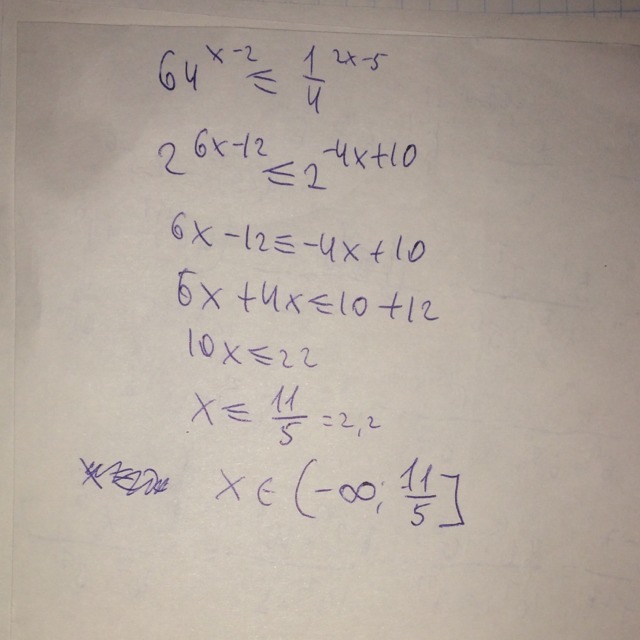 64^(x-2) ≤ 1/4^(2x-5)
2^(6x-12) ≤ 2^(-4x+10)
6x - 12 ≤ -4x + 10
6x + 4x ≤ 10 + 12
10x ≤ 22
x ≤ 11/5 = 2,2
x ∈ (-∞; 11/5]